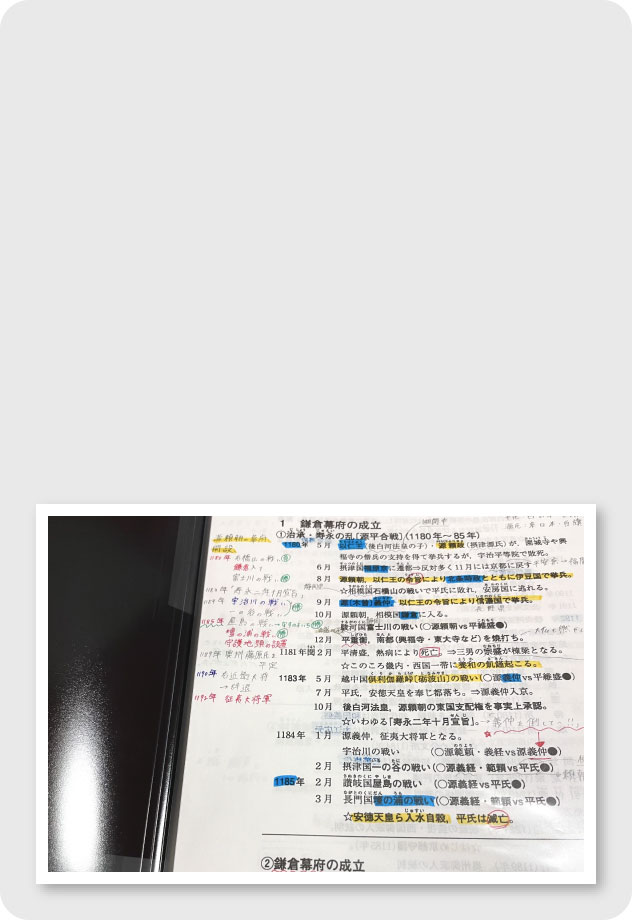 1 鎌倉幕府の成立
①治承・寿永の乱〔源平合戦〕(1180年〜85年)
1180年 5月 以仁王(後白河法皇の子)・源頼政(摂津源氏)が、園城寺や興
福寺の僧兵の支持を得て挙兵するが、宇治平等院で敗死。
6月 摂津国福原京に遷都⇒反対多く11月には京都に戻す
8月 源頼朝、以仁王の令旨により北条時政とともに伊豆国で挙兵。
☆相模国石橋山の戦いで平氏に敗れ、安房国に逃れる。
9月 源(木曽)義仲、以仁王の令旨により信濃国で挙兵。
10月 源頼朝、相模国鎌倉に入る。
駿河国富士川の戦い(〇源頼朝vs平維盛●)
12月 平重衡、南都(興福寺・東大寺など)を焼打ち。
1181年閏2月 平清盛、熱病により死亡。⇒三男の宗盛が棟梁となる。
☆このころ畿内・西国一帯に養和の飢饉起こる。
1183年 5月 越中国倶利伽羅峠〔砺波山〕の戦い(〇源義仲vs平維盛●)
7月 平氏、安徳天皇を奉じ都落ち。⇒源義仲入京。
10月 後白河法皇、源頼朝の東国支配権を事実上承認。
☆いわゆる「寿永二年十月宣旨」。
1184年 1月 源義仲、征夷大将軍となる。
宇治川の戦い (〇源範頼・義経vs源義仲●)
2月 摂津国一の谷の戦い(〇源義経・範頼vs平氏●)
1185年 2月 讃岐国屋島の戦い (〇源義経vs平氏●)
3月 長門国壇の浦の戦い(〇源義経・範頼vs平氏●)
☆安徳天皇ら入水自殺、平氏は滅亡。
②鎌倉幕府の成立
源頼朝の幕府
開設
石橋山の戦い
鎌倉入り
富士川の戦い
「寿永二年十月宣旨」
宇治川の戦い
一の谷の戦い
1185年 屋島の戦い
壇の浦の戦い
守護地頭の設置
1189年 奥州藤原氏を
平定
1190年 右近衛大将
1192年 征夷大将軍